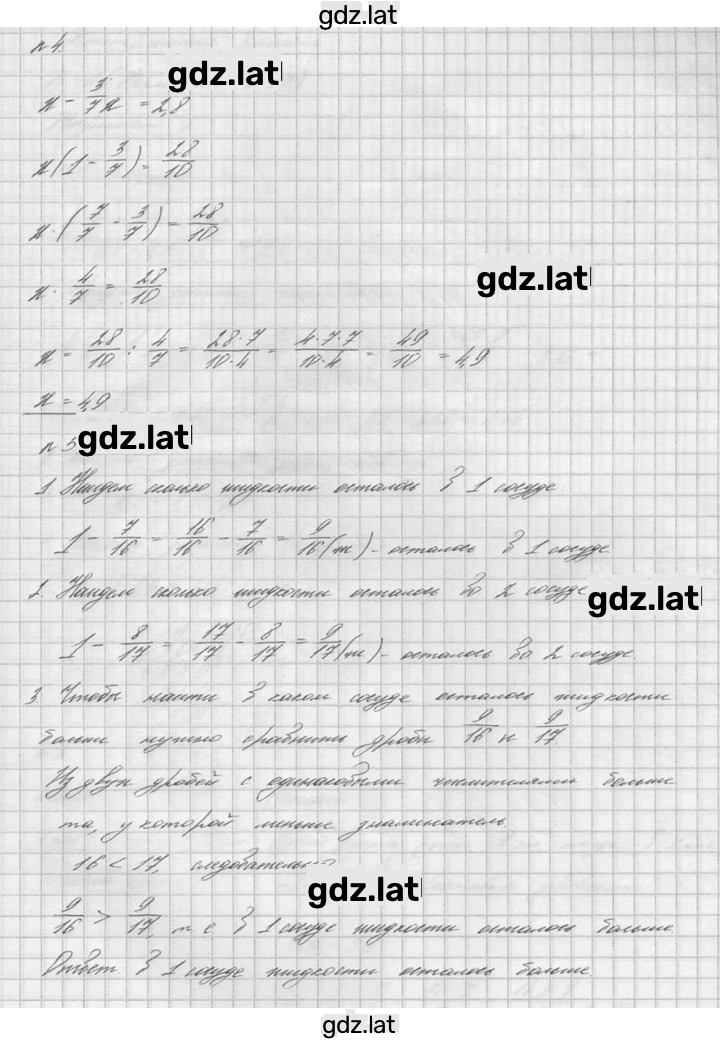 gdz.lat
№ 4.
gdz.lat
x - 3/7 x = 2,8
x (1 - 3/7) = 28/10
x · (7/7 - 3/7) = 28/10
x · 4/7 = 28/10
gdz.lat
x = 28/10 : 4/7 = 28·7/10·4 = 4·7·7/10·4 = 49/10 = 4,9
x = 4,9
№ 5
gdz.lat
1. Найдем сколько жидкости осталось в 1 сосуде.
1 - 7/16 = 16/16 - 7/16 = 9/16 (ж) - осталось в 1 сосуде
2. Найдем сколько жидкости осталось во 2 сосуде
gdz.lat
1 - 8/17 = 17/17 - 8/17 = 9/17 (ж) - осталось во 2 сосуде.
3 Чтобы найти в каком сосуде осталось жидкости
больше нужно сравнить дроби 9/16 и 9/17.
Из двух дробей с одинаковыми числителями больше
та, у которой меньше знаменатель.
16 < 17, следовательно
gdz.lat
9/16 > 9/17, т. е. в 1 сосуде жидкости осталось больше.
Ответ: в 1 сосуде жидкости осталось больше.
gdz.lat